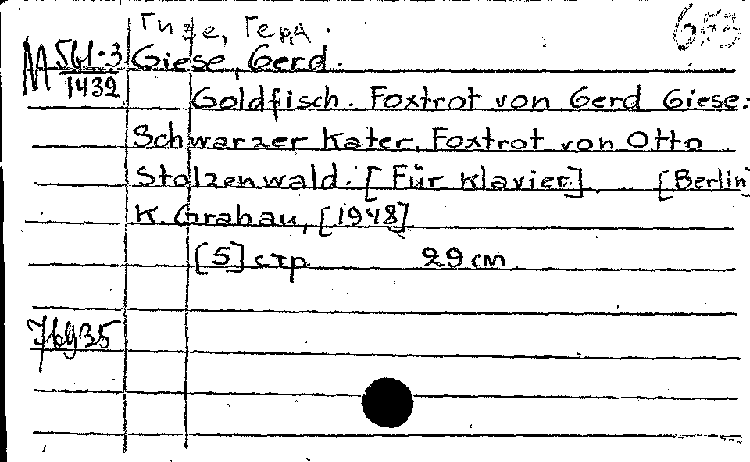 Гизе, Герд.
M 561-3
1432
Giese, Gerd.
Goldfisch. Foxtrot von Gerd Giese.
Schwarzer Kater. Foxtrot von Otto
Stolzenwald. [Für Klavier]. [Berlin]
K. Grabau, [1948]
[5] стр 29 см
76935